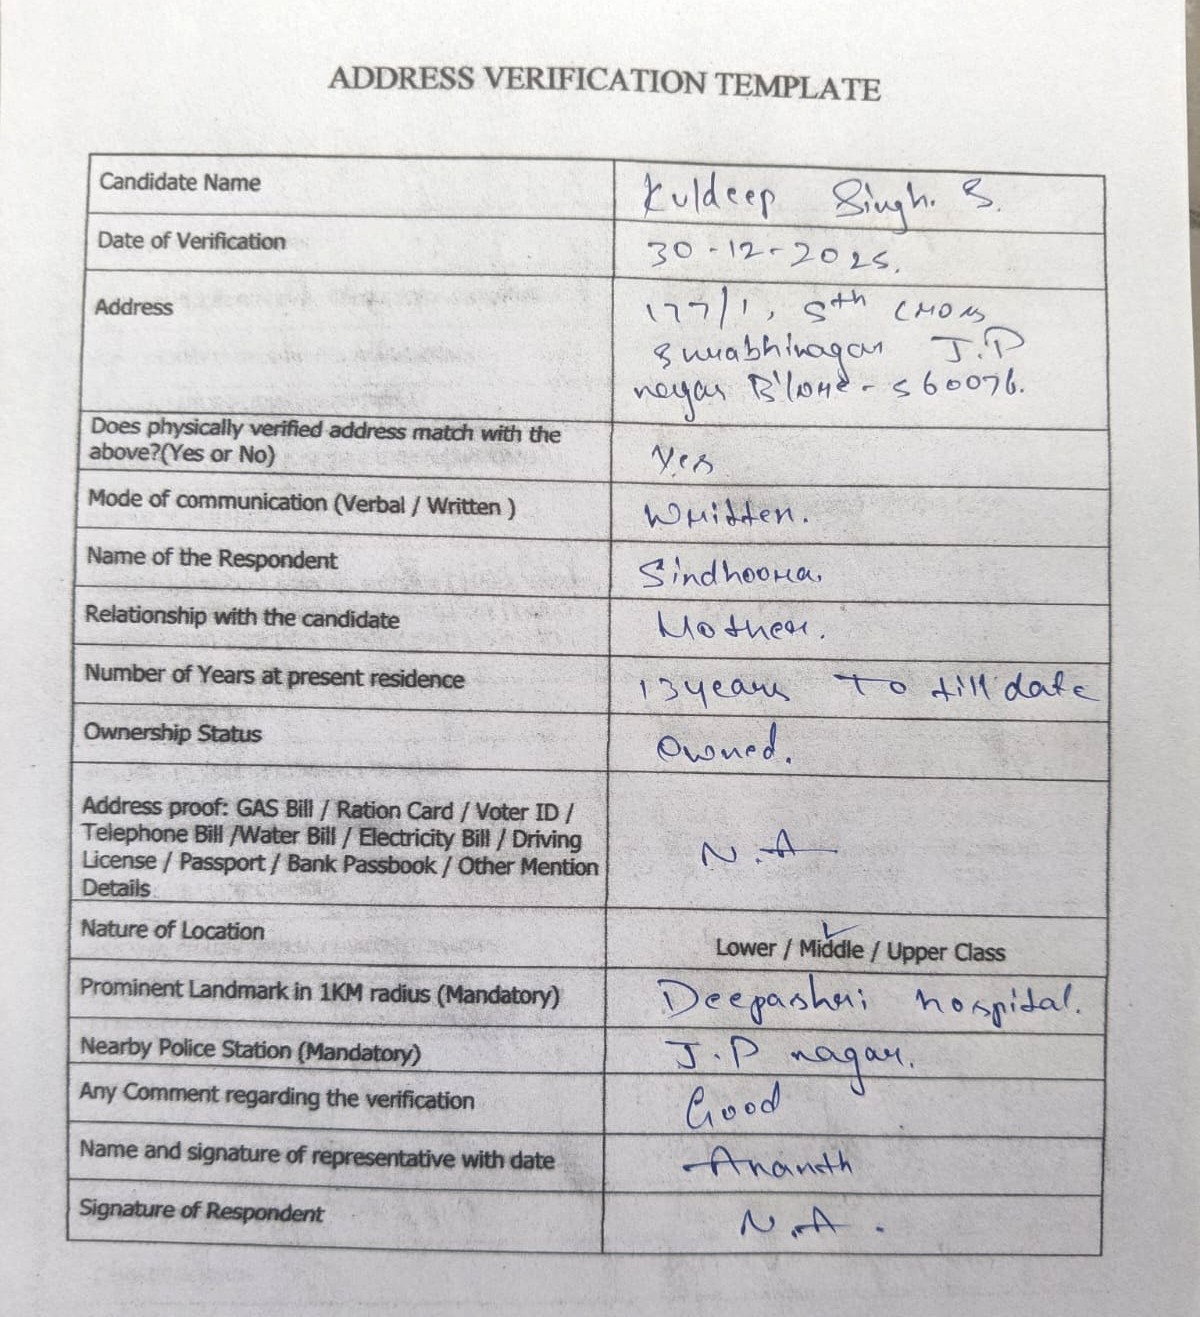 ADDRESS VERIFICATION TEMPLATE
Candidate Name
Kuldeep Singh. S.
Date of Verification
30-12-2025.
Address
177/1, 5th cross
Surabhinagar J.P
nagar B'lore - 560076.
Does physically verified address match with the
above?(Yes or No)
Yes
Mode of communication (Verbal / Written )
Written.
Name of the Respondent
Sindhoora.
Relationship with the candidate
Mother.
Number of Years at present residence
13years To till date
Ownership Status
Owned.
Address proof: GAS Bill / Ration Card / Voter ID /
Telephone Bill /Water Bill / Electricity Bill / Driving
License / Passport / Bank Passbook / Other Mention
Details
N.A
Nature of Location
Lower / Middle / Upper Class
Prominent Landmark in 1KM radius (Mandatory)
Deepashri hospital.
Nearby Police Station (Mandatory)
J.P nagar.
Any Comment regarding the verification
Good
Name and signature of representative with date
Ananth
Signature of Respondent
N.A.